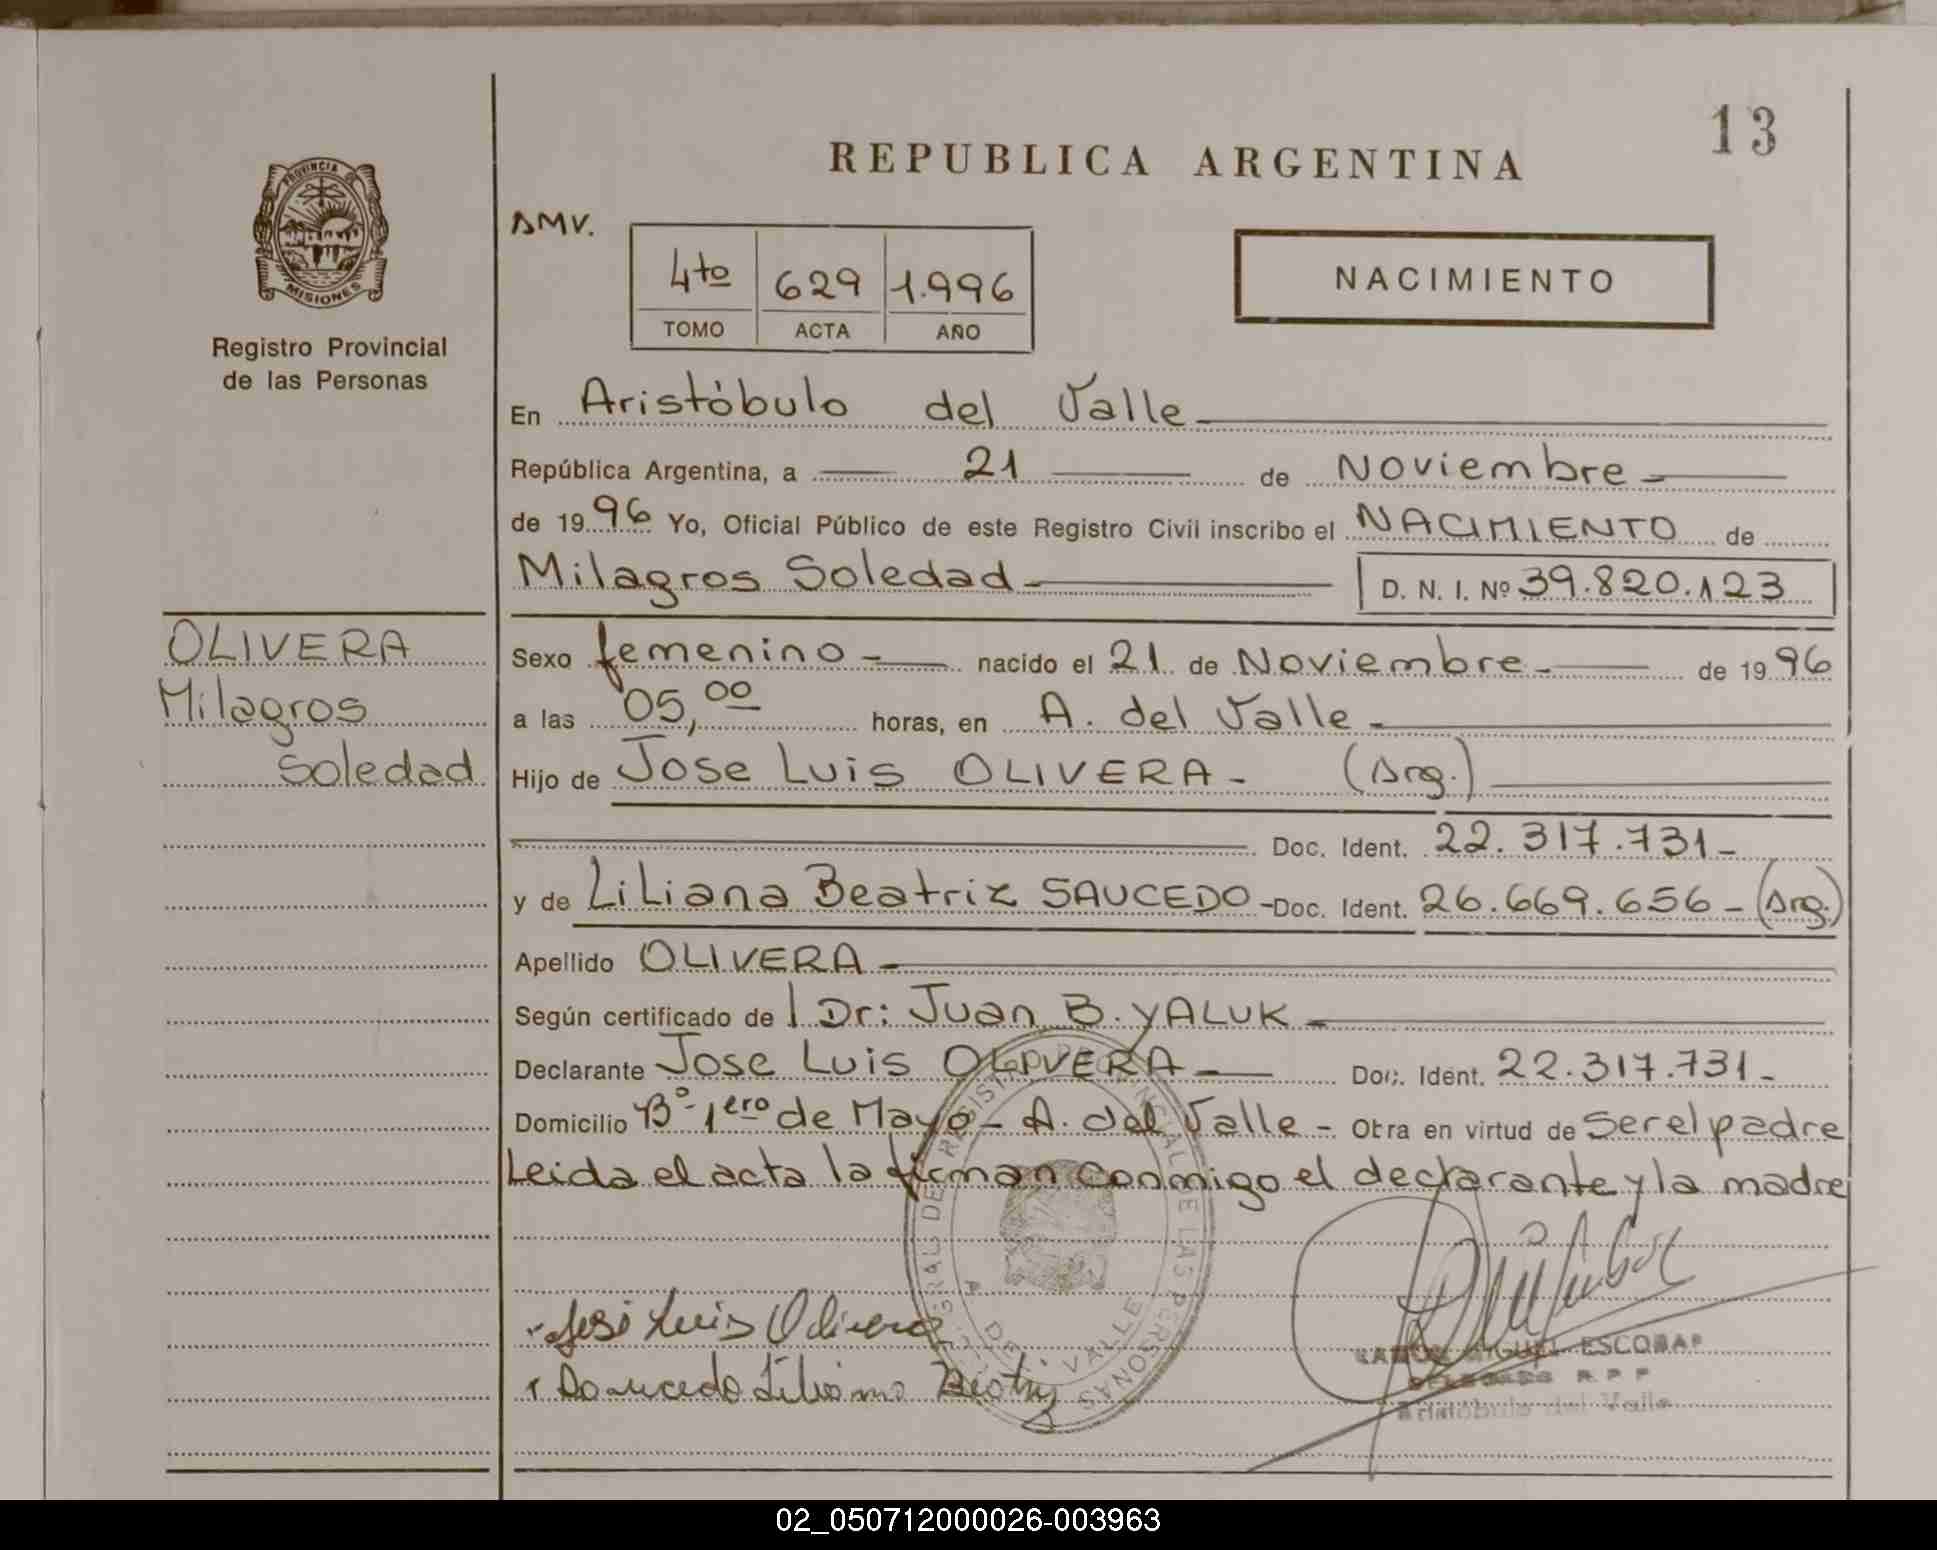 13
REPUBLICA ARGENTINA
PROVINCIA DE
MISIONES
Registro Provincial
de las Personas
AMV.
4to 629 1.996
TOMO ACTA AÑO
NACIMIENTO
En Aristóbulo del Valle
República Argentina, a 21 de Noviembre
de 1996 Yo, Oficial Público de este Registro Civil inscribo el NACIMIENTO de
Milagros Soledad D. N. I. Nº 39.820.123
OLIVERA
Milagros
Soledad
Sexo femenino nacido el 21 de Noviembre de 1996
a las 05,00 horas, en A. del Valle
Hijo de Jose Luis OLIVERA - (Arg.)
Doc. Ident. 22.317.731-
y de Liliana Beatriz SAUCEDO - Doc. Ident. 26.669.656 - (Arg.)
Apellido OLIVERA
Según certificado de l Dr: Juan B. YALUK
Declarante Jose Luis OLIVERA Doc. Ident. 22.317.731-
Domicilio Bº 1ero de Mayo - A. del Valle - Obra en virtud de ser el padre
Leida el acta la firman conmigo el declarante y la madre
José Luis Olivera
Saucedo Liliana Beatriz
DEL VALLE
RAMON MIGUEL ESCOBAR
DELEGADO R P P
Aristóbulo del Valle
02_050712000026-003963